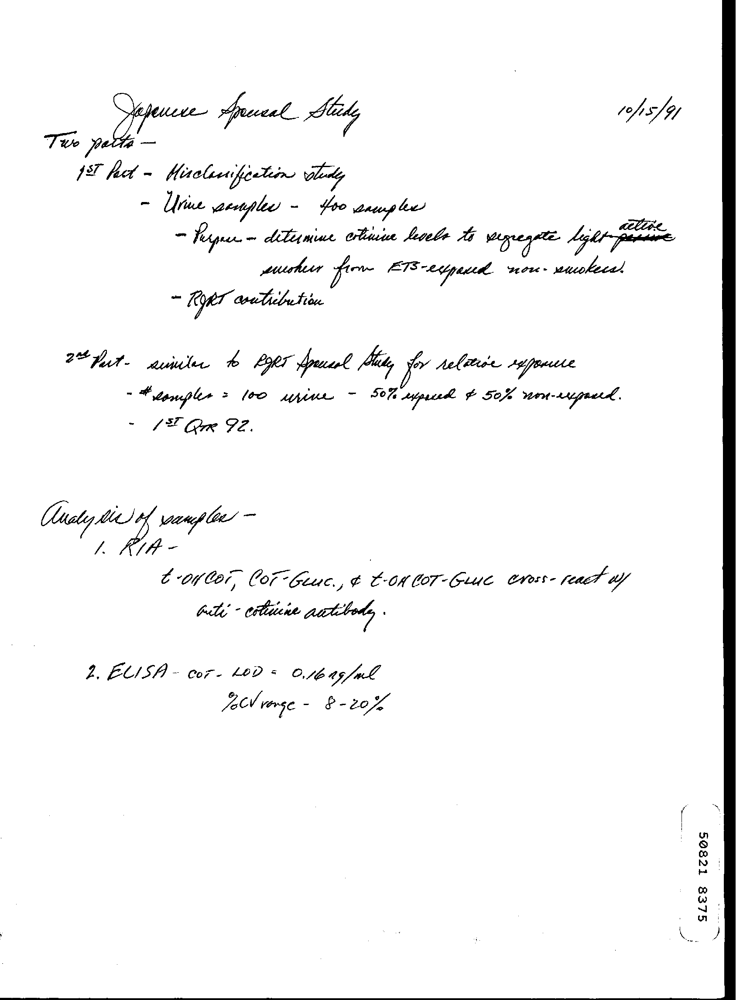 Japanese Spousal Study 10/15/91
Two parts —
1ST Part - Misclassification study
- Urine samples - 400 samples
- Purpose - determine cotinine levels to segregate light passive active
smokers from ETS-exposed non-smokers.
- RJRT contribution
2nd Part - similar to RJRT Spousal Study for relative exposure
- # samples = 100 urine - 50% exposed & 50% non-exposed.
- 1ST QTR 92.
Analysis of samples —
1. RIA -
t-OHCOT, COT-GLUC., & t-OHCOT-GLUC cross-react w/
anti-cotinine antibody.
2. ELISA - COT - LOD = 0.16 ng/ml
%CV range - 8-20%
50821 8375